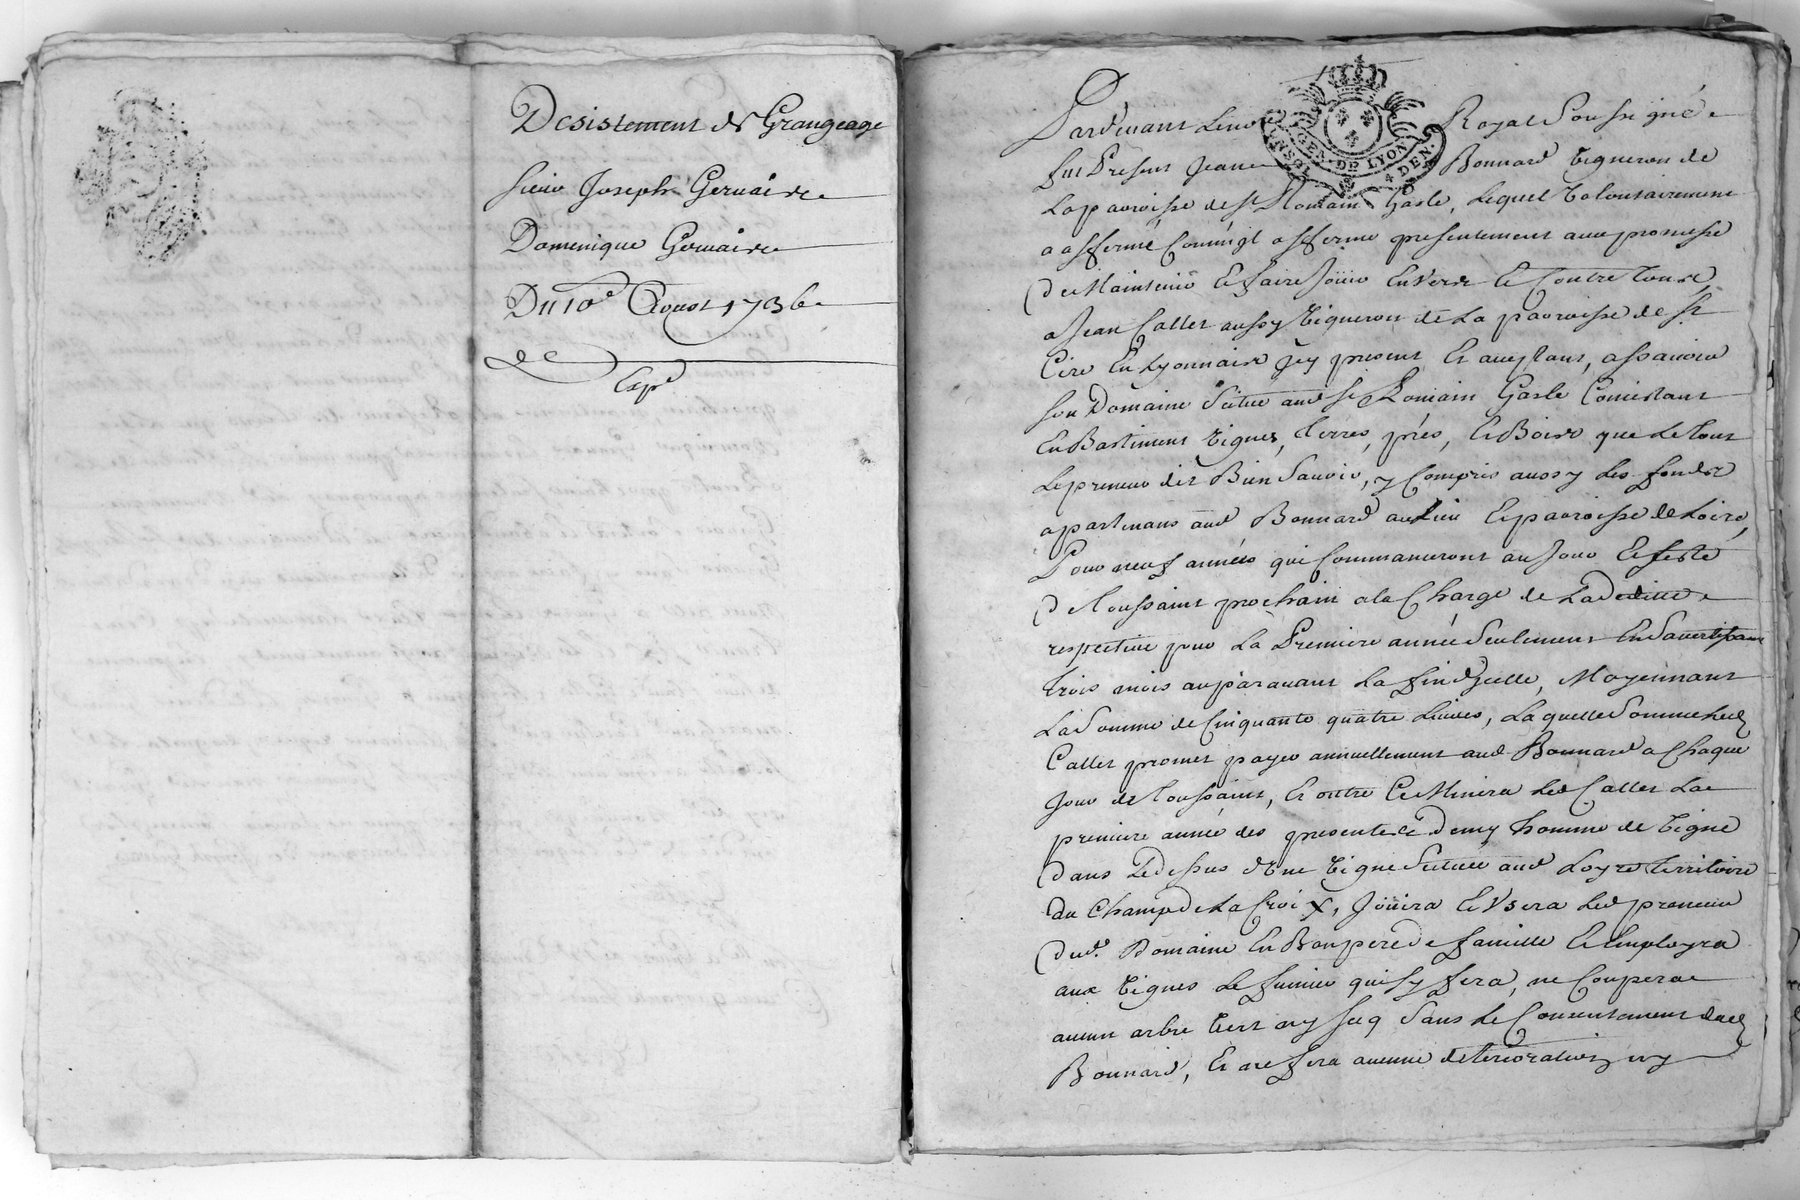 Desistement de Grangeage
sieur Joseph Gervaise
Domenique Gervaise
Du 10e Aoust 1736
Expé
GEN. DE LYON
4 DEN.
Pardevant le no Royal Soussigné
fut Present Jean Bonnard Vigneron de
la parroisse de st Romain Gasle, lequel volontairement
a affermé comme il afferme presentement avec promesse
de Maintenir et faire Joüir Envers et Contre tous
a Jean Callet aussy Vigneron de la parroisse de st
Cire En Lyonnais icy present et acceptant, assavoir
son Domaine Situé aud st Romain Gasle Consistant
En Bastiment vignes, terres, prés, et Bois que le tout
le preneur dit Bien Scavoir, y Compris aussy les fonds
apartenans aud Bonnard au lieu et parroisse de Loire,
Pour neuf années qui Commanceront au Jour et feste
de Toussaint prochain a la Charge de La
respective pour La Premiere année Seulement En S'avertissant
trois mois auparavant La fin d'jcelle, Moyennant
La Somme de Cinquante quatre Livres, Laquelle Somme led
Callet promet payer annuellement aud Bonnard a Chaque
Jour de Toussaint, Et outre Ce Minera led Callet La
premiere année des presentes Demy homme de Vigne
Dans Le dessus d'Une Vigne Scituée aud Loyre territoire
du Champ de La Croix, Joüira et Usera led preneur
dud. Domaine En Bon pere de famille Et Employra
aux Vignes Le fumier qui s'y fera, ne Coupera
aucun arbre Vert ny secq Sans le Consentement dud
Bonnard, Et ne fera aucune deterioration ny